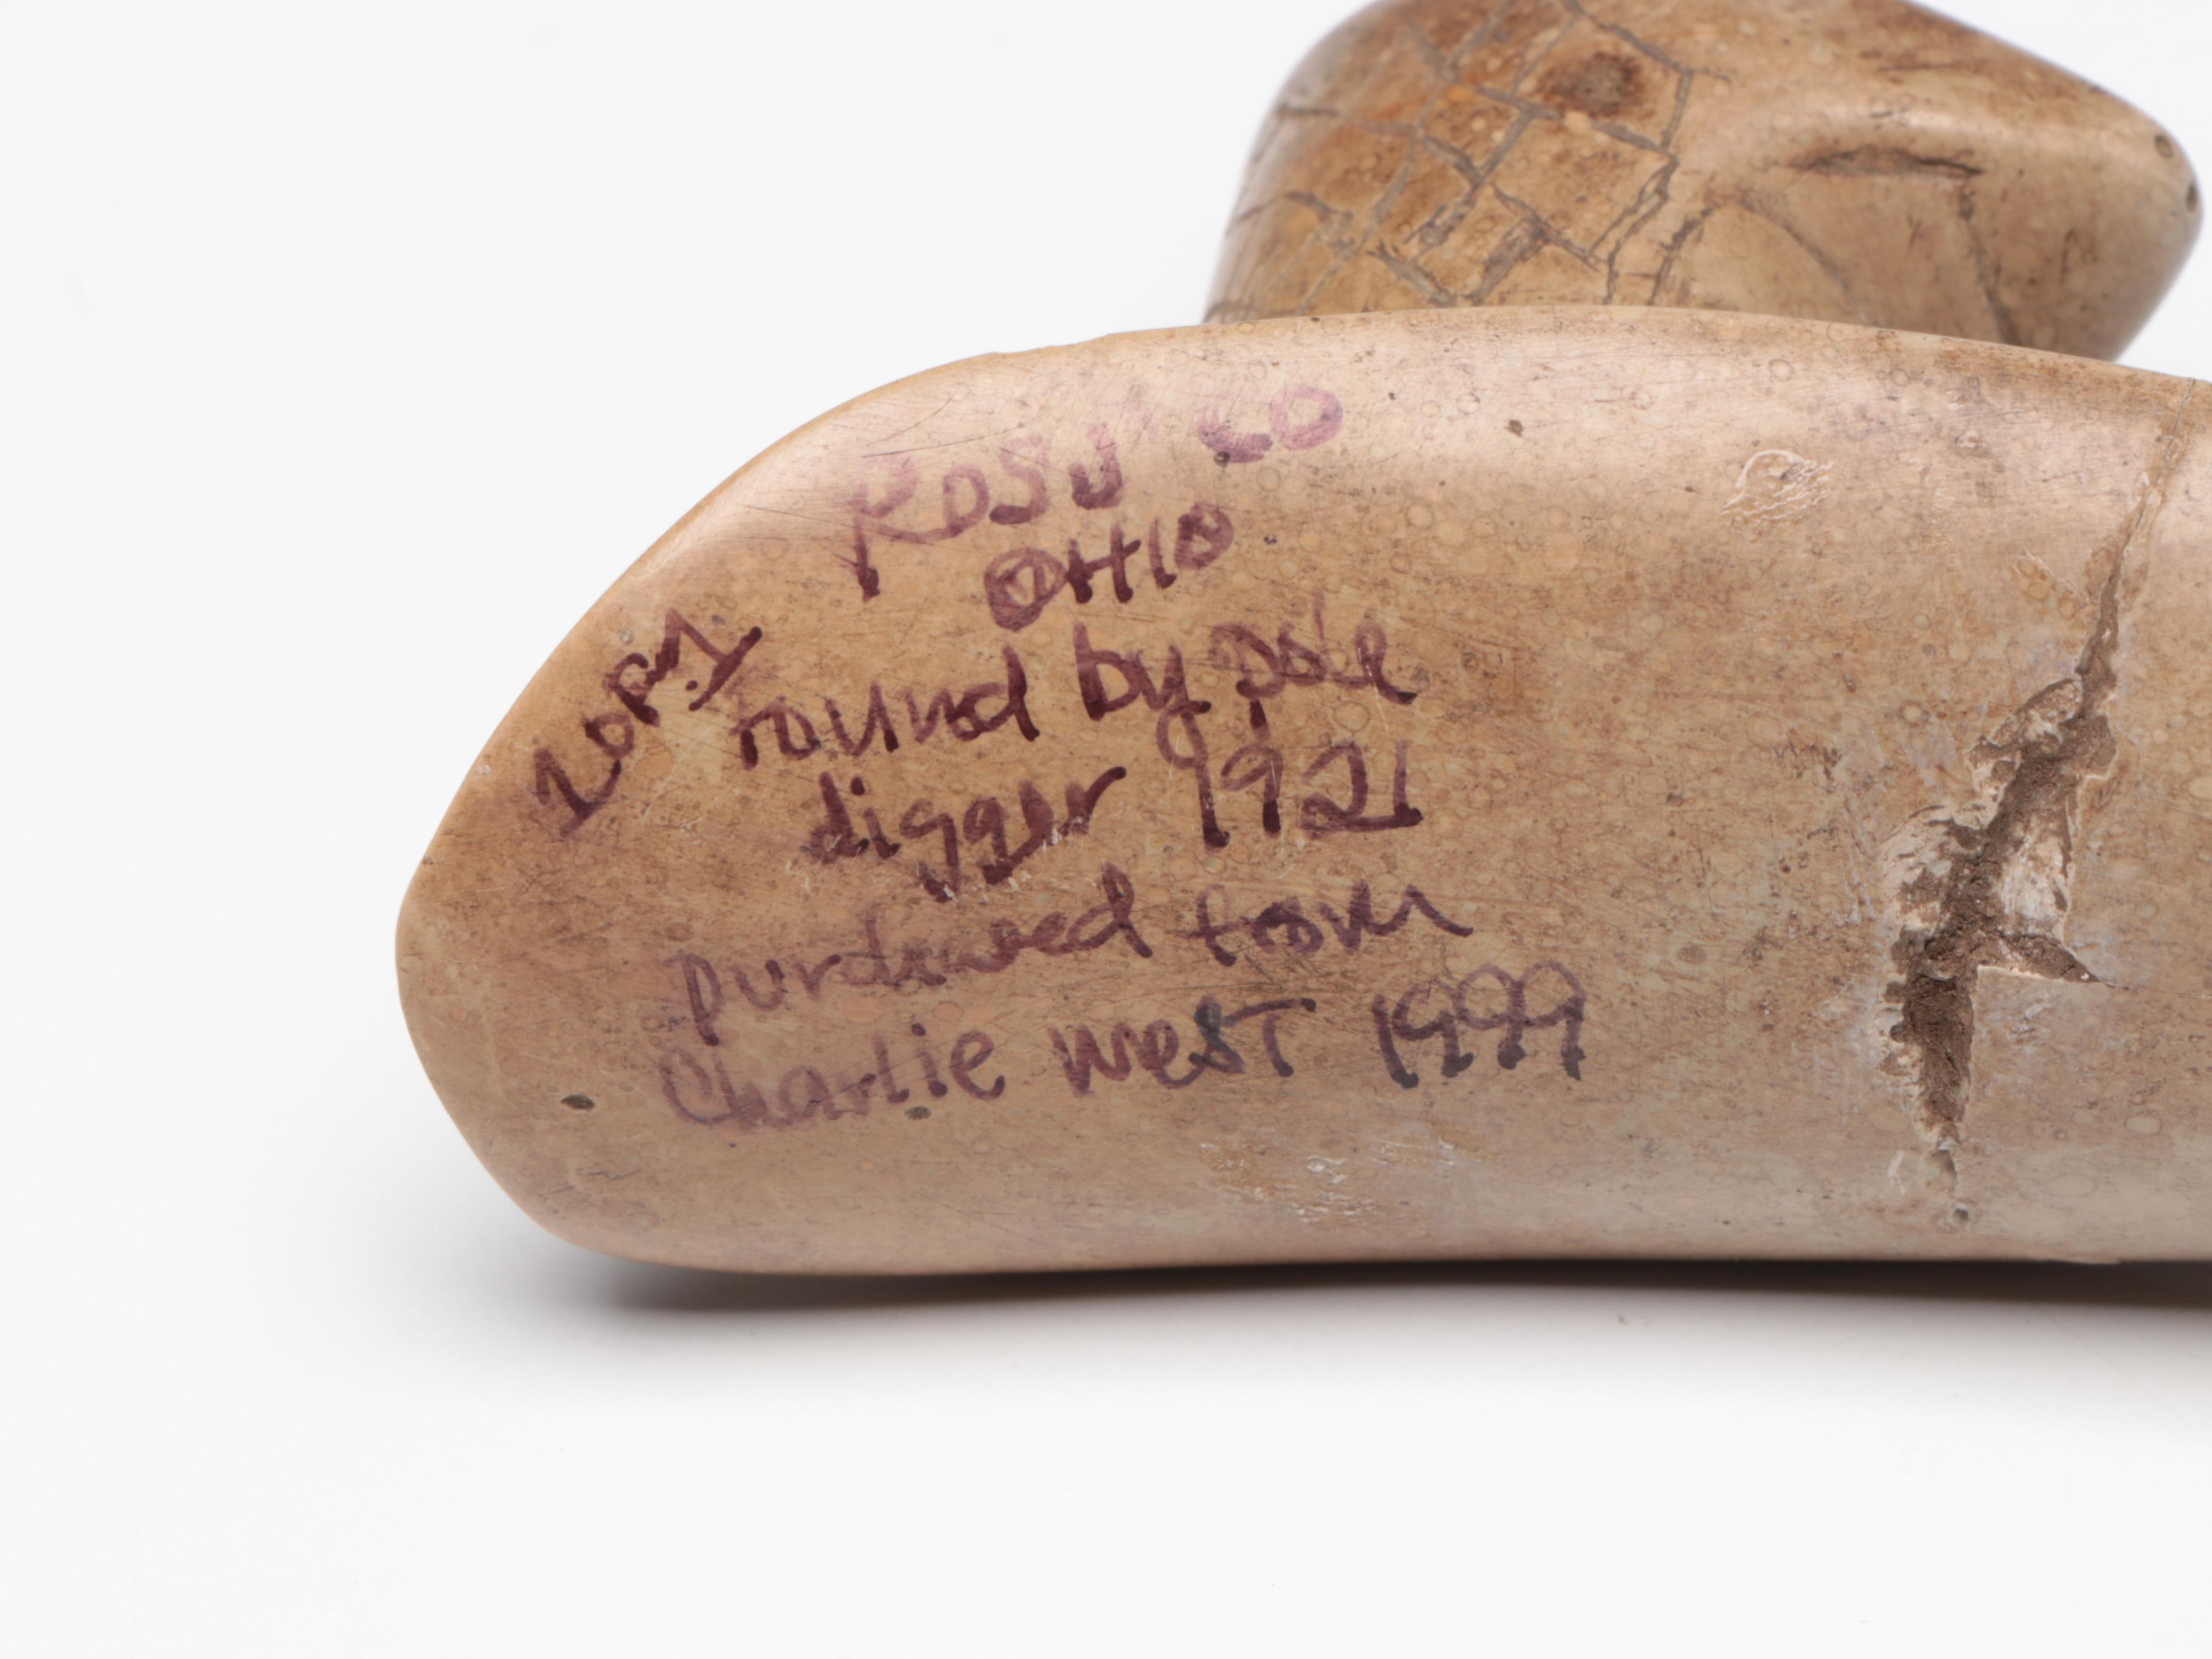 ROSS CO
OHIO
found by pole
digger 1921
purchased from
Charlie West 1999